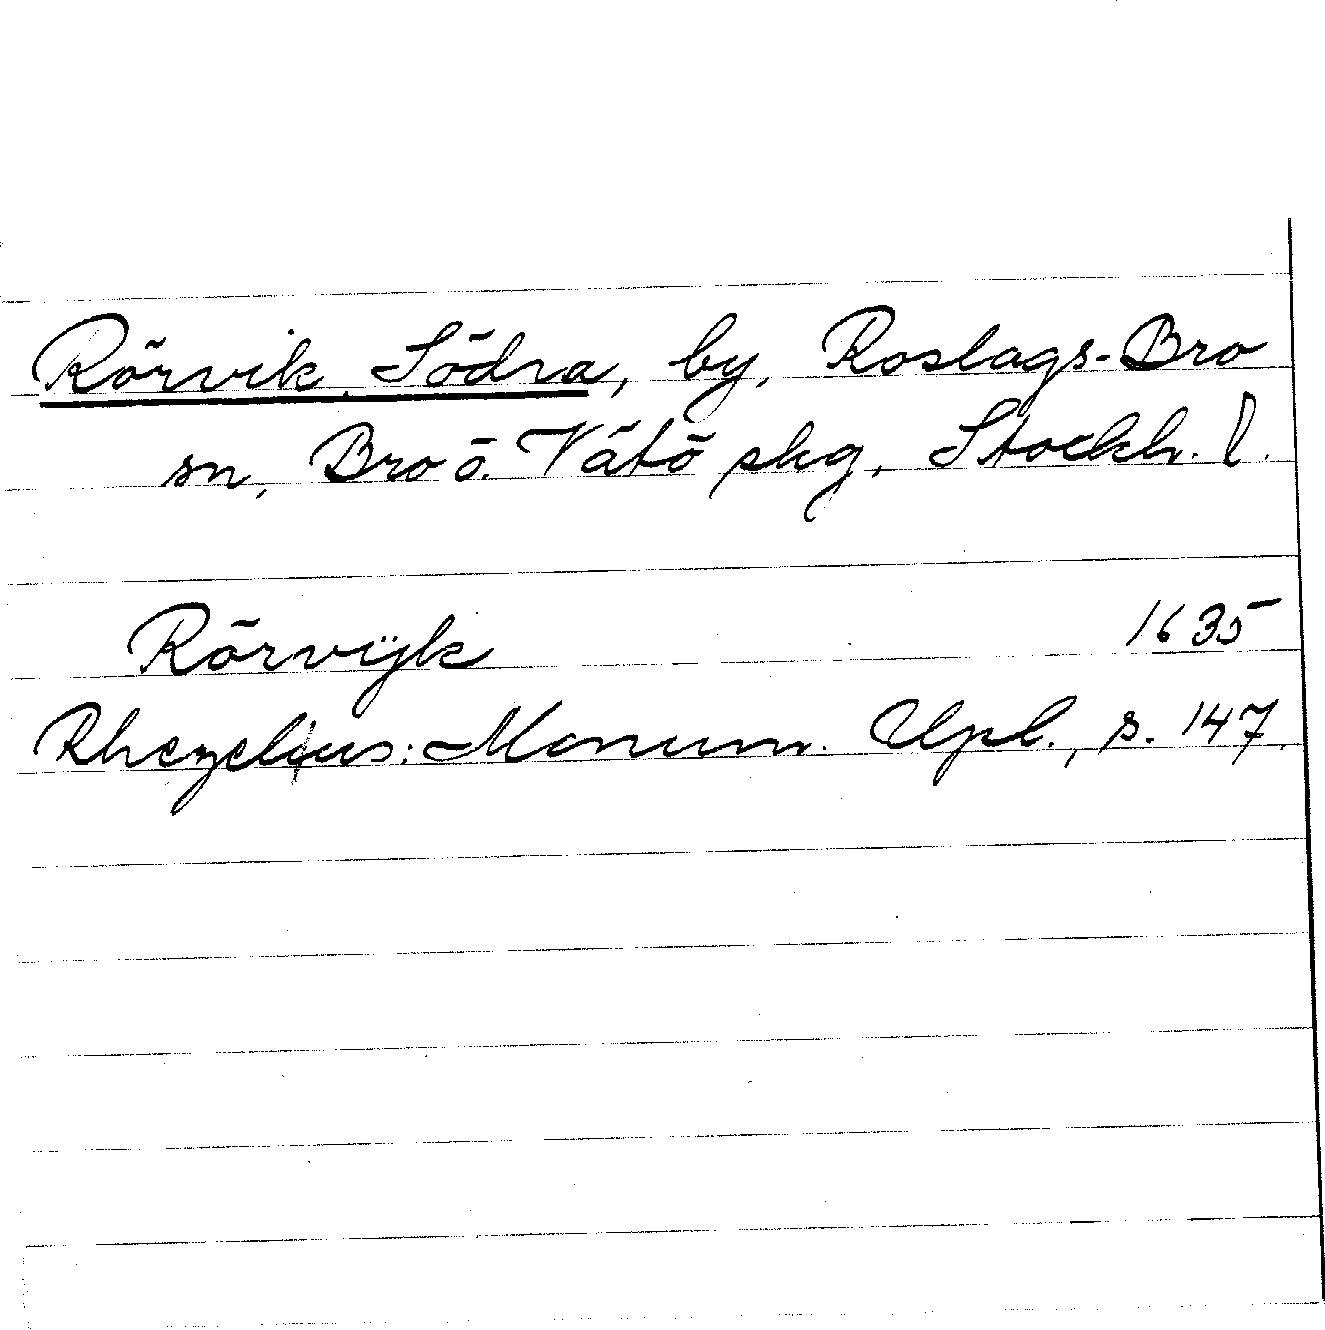 Rörvik, Södra, by, Roslags-Bro
sn, Bro ö. Vätö skg, Stockh. l.
Rörvijk 1635
Rhezelius: Monum. Upl., s. 147.